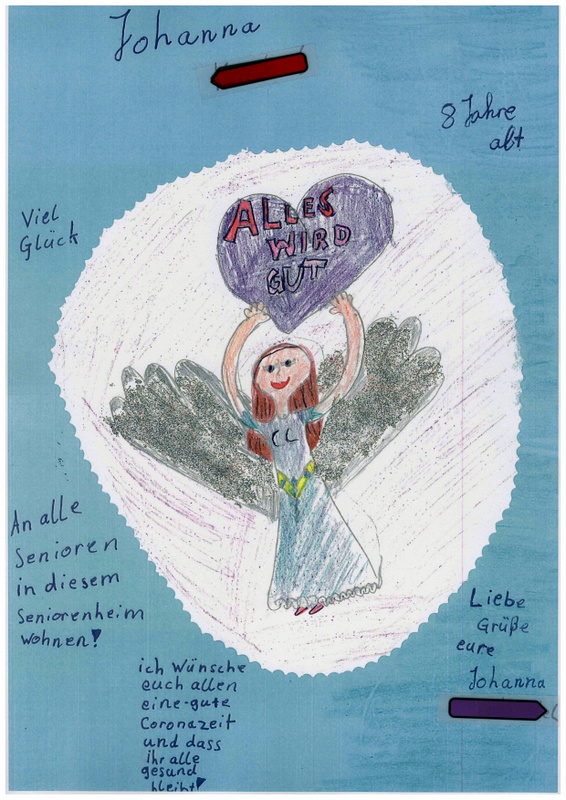 Johanna
8 Jahre
alt
Viel
Glück
ALLES
WIRD
GUT
CC
An alle
Senioren
in diesem
Seniorenheim
wohnen!
ich Wünsche
euch allen
eine gute
Coronazeit
und dass
ihr alle
gesund
bleibt!
Liebe
Grüße
eure
Johanna